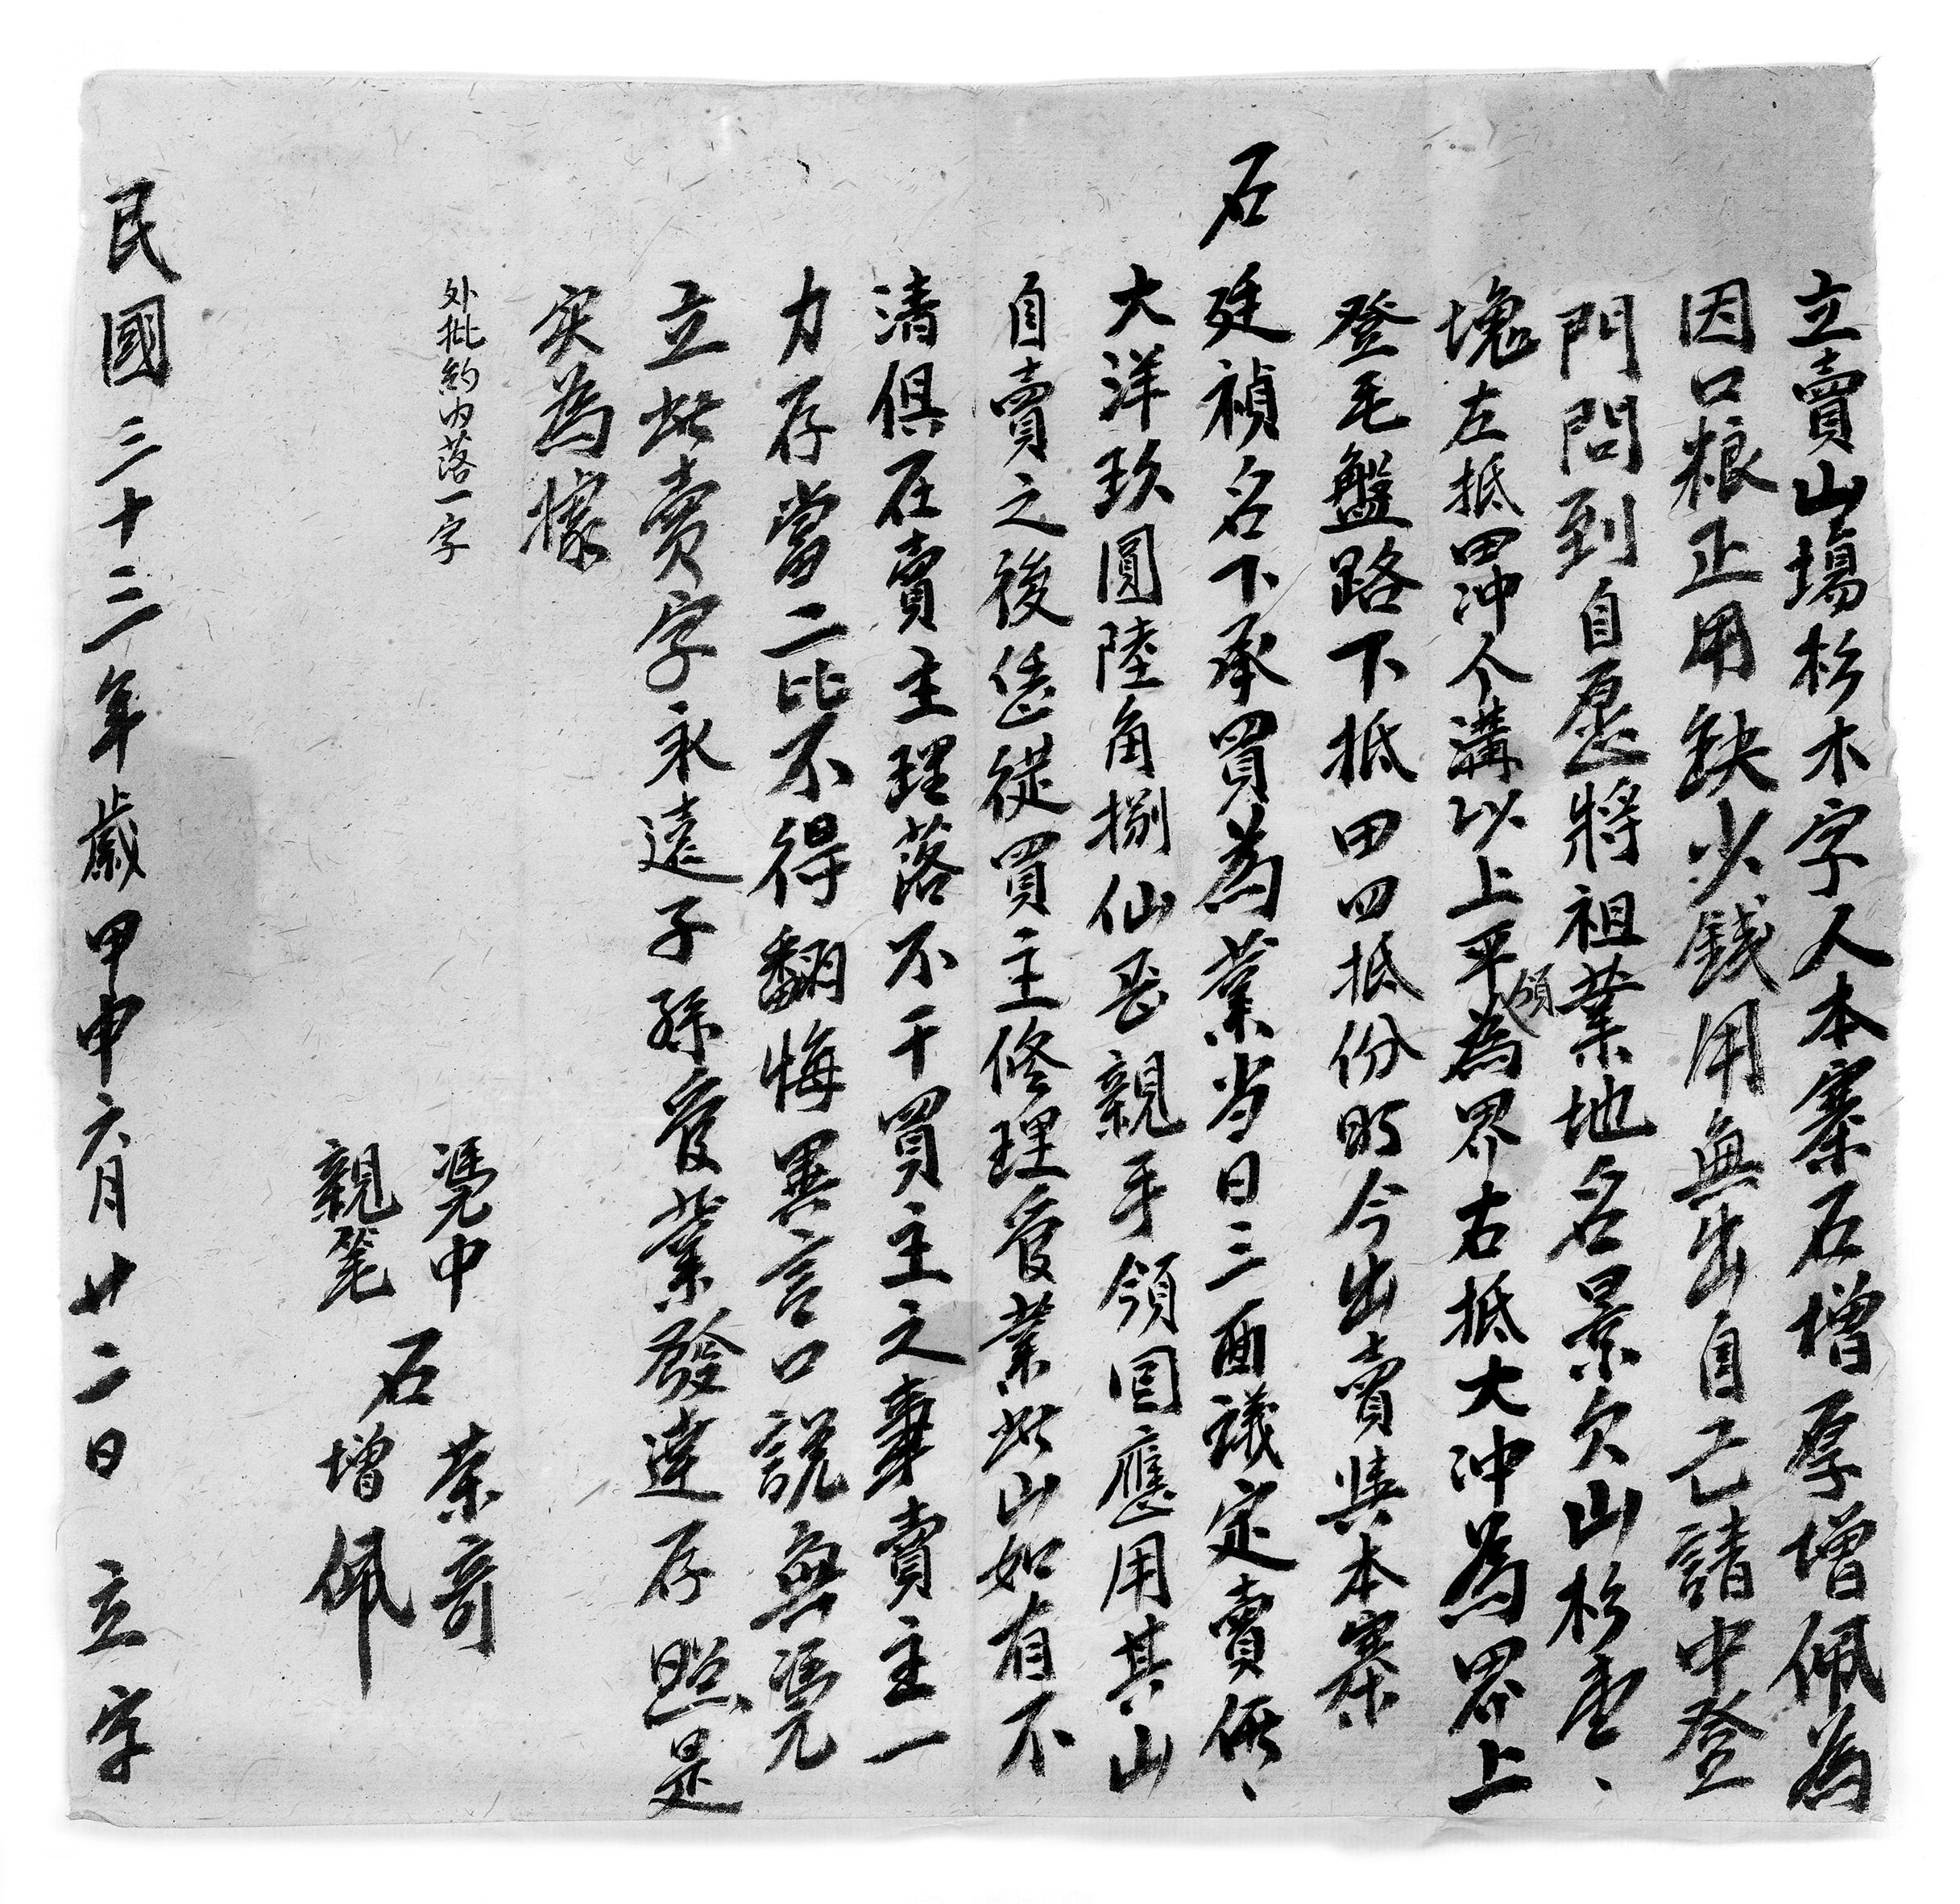 立賣山塲杉木字人本寨石增厚增佩為
因口粮正用缺少銭用無出自己請中登
門問到自愿將祖業地名景欠山杉壹、
塊左抵田冲个溝以上平嶺為界右抵大冲為界上
登毛盤路下抵田四抵份明今出賣與本寨
石廷禎名下承買為業当日三面議定賣價、
大洋玖圓陸角捌仙 親手領回應用其山
自賣之後恁從買主修理管業此山如有不
清俱在賣主理落不干買主之事賣主一
力存當二比不得翻悔異言口說無憑
立此賣字永遠子孫管業發達存照是
实為據
外批約内落一字
憑中 石荣奇
親筆 石增佩
民國三十三年歲甲申六月廿二日 立字